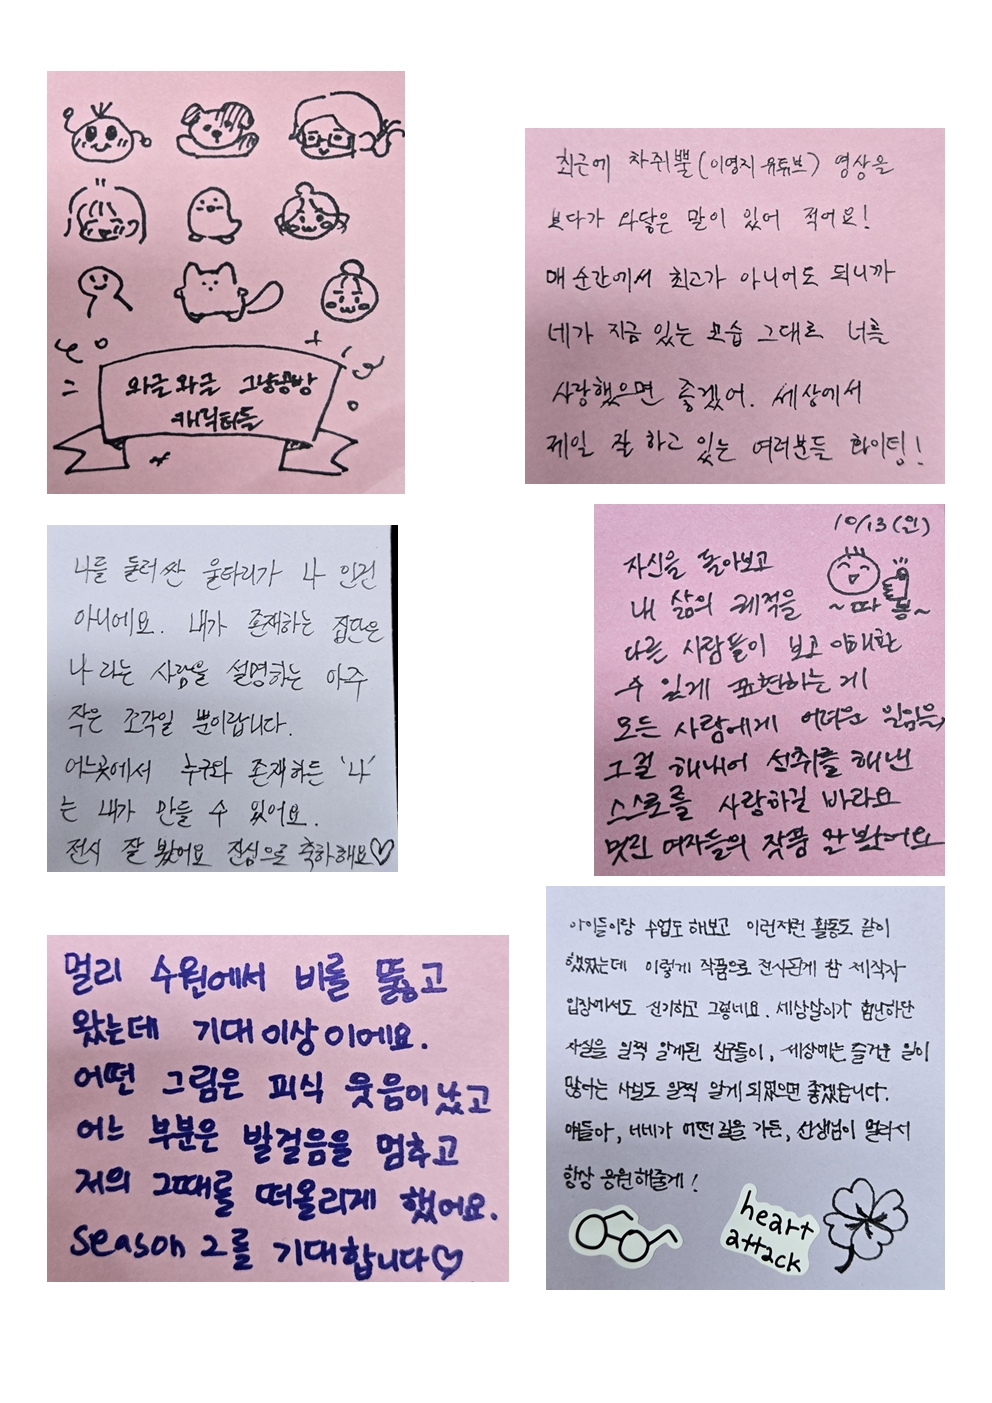 와글와글 그냥공방
캐릭터들
최근에 차쥐뿔(이영지 유튜브) 영상을
보다가 와닿은 말이 있어 적어요!
매 순간에서 최고가 아니어도 되니까
네가 지금 있는 모습 그대로 너를
사랑했으면 좋겠어. 세상에서
제일 잘 하고 있는 여러분들 화이팅!
나를 둘러싼 울타리가 나 인건
아니에요. 내가 존재하는 집단은
나 라는 사람을 설명하는 아주
작은 조각일 뿐이랍니다.
어느곳에서 누구와 존재하든 '나'
는 내가 만들 수 있어요.
전시 잘 봤어요 진심으로 축하해요♡
10/13(일)
자신을 돌아보고
내 삶의 궤적을
~따봉~
다른 사람들이 보고 이해할
수 있게 표현하는 게
모든 사람에게 어려운 일임을,
그걸 해내어 성취를 해낸
스스로를 사랑하길 바라요
멋진 여자들의 작품 잘 봤어요
멀리 수원에서 비를 뚫고
왔는데 기대이상이에요.
어떤 그림은 피식 웃음이 났고
어느 부분은 발걸음을 멈추고
저의 그때를 떠올리게 했어요.
season 2를 기대합니다♡
아이들이랑 수업도 해보고 이런저런 활동도 같이
했었는데 이렇게 작품으로 전시된게 참 제작자
입장에서도 신기하고 그렇네요. 세상살이가 험난하단
사실을 일찍 알게된 친구들이, 세상에는 즐거운 일이
많다는 사실도 일찍 알게 되었으면 좋겠습니다.
얘들아, 너네가 어떤 길을 가든, 선생님이 멀리서
항상 응원해줄게!
heart
attack